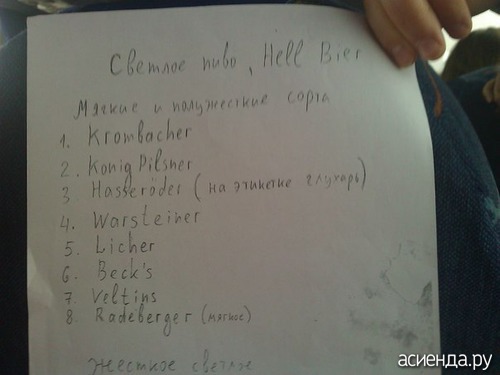 Светлое пиво, Hell Bier
Мягкие и полужесткие сорта
1. Krombacher
2. König Pilsner
3 Hasseröder (на этикетке глухарь)
4. Warsteiner
5. Licher
6 Beck's
7. Veltins
8. Radeberger (мягкое)
Жесткое светлое
асиенда.ру